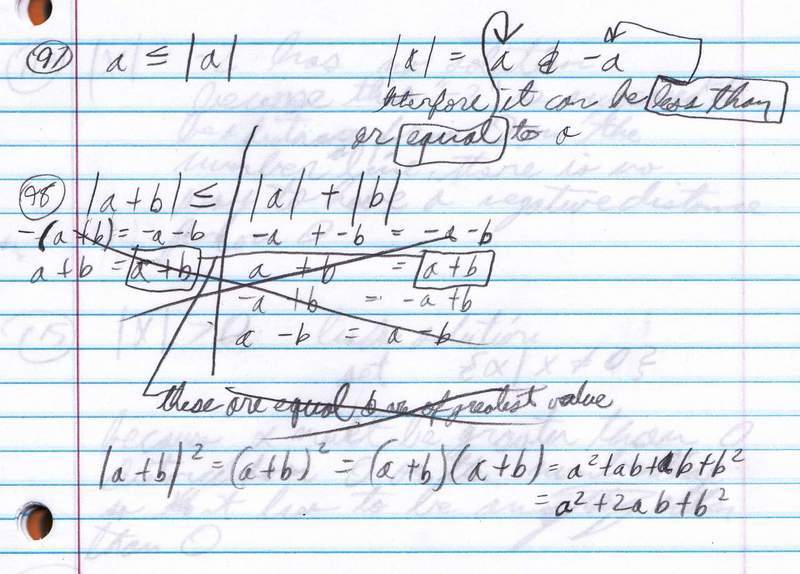 97 a ≤ |a| |x| = a or -a
therfore it can be less than
or equal to a
98 |a+b| ≤ |a| + |b|
-(a+b) = -a-b -a + -b = -a-b
a+b = a+b a + b = a+b
-a + b = -a+b
a - b = a-b
these are equal of greatest value
|a+b|² = (a+b)² = (a+b)(a+b) = a²+ab+ab+b²
= a²+2ab+b²